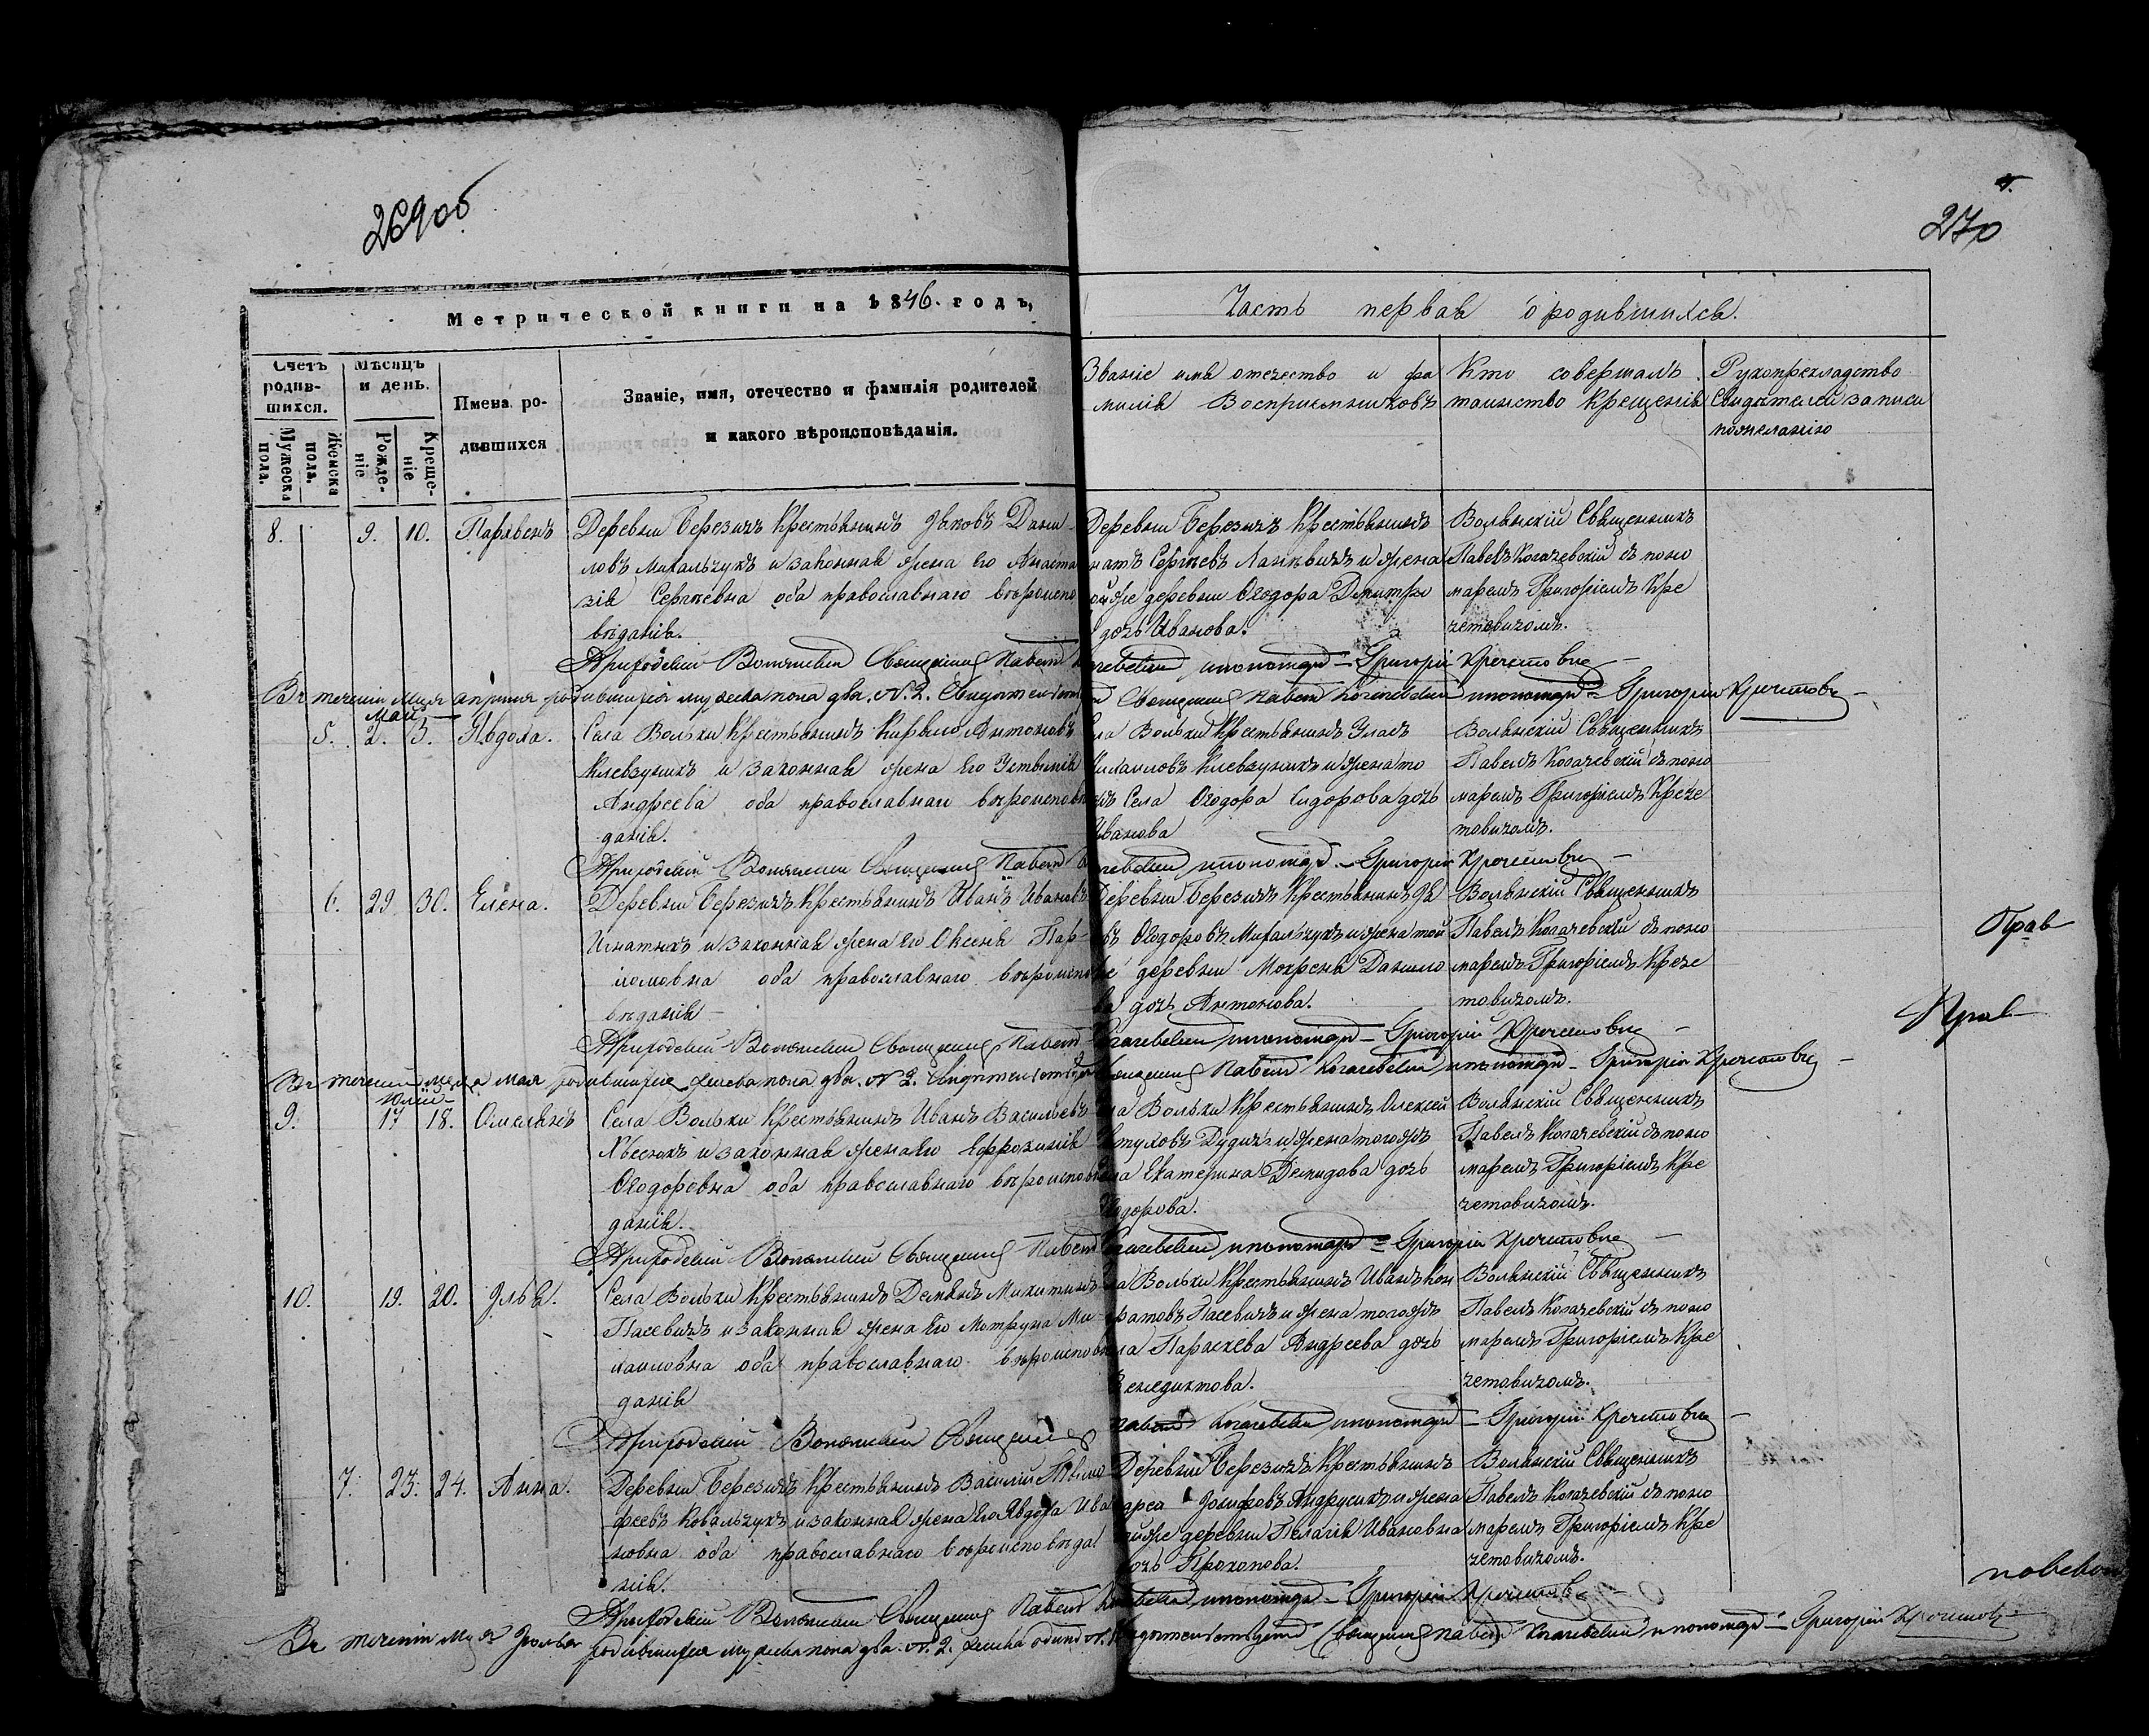 269об
270
Метрической книги на 1846. годъ,
Часть первая о родившихся.
Счетъ родив-шихся.
Мужеска пола.
Женска пола.
Мѣсяцъ и день.
Рожде-ніе
Креще-ніе
Имена ро-
дившихся
Званіе, имя, отечество и фамилія родителей
и какого вѣроисповѣданія.
Званіе имя отечество и фа
милія Воспріемниковъ
Кто совершалъ
таинство Крещенія
Рукоприкладство
Свидѣтелей записи
по желанію
8. 9. 10. Парѳенъ
Деревни Березичъ Крестьянинъ Яковъ Дани
ловъ Михальчукъ и законная жена Его Анаста
зія Сергѣевна оба православнаго вѣроиспо
вѣданія.
Деревни Березичъ Крестьянинъ
натъ Сергѣевъ и жена
ойже деревни Ѳеодора Дмитри
дочь Иванова.
Волянскій Священникъ
Павелъ Когачевскій съ поно
маремъ Григоріемъ Кре
четовичомъ.
Приходскій Волянскій Священникъ Павелъ Когачевскій и пономарь Григорій Кречетовичъ
Въ теченіи Мца апрѣля родившихся мужеска пола два. N. 2. Священникъ Павелъ Когачевскій и пономарь Григорій Кречетови
Май
5. 2. 3. Явдоха.
Села Вольки Крестьянинъ Кирило Антоновъ
Клевзуникъ и законная жена Его Устинія
Андреева оба православнаго вѣроисповѣ
данія.
ла Вольки Крестьянинъ Уласъ
Михаиловъ Клевзуникъ и жена то
жъ Села Ѳеодора Сидорова дочь
Иванова
Волянскій Священникъ
Павелъ Когачевскій съ поно
маремъ Григоріемъ Крече
товичомъ.
Приходскій Волянскій Священникъ Павелъ Когачевскій и пономарь Григорій Кречетовичъ
6. 29. 30. Елена.
Деревни Березичъ Крестьянинъ Иванъ Ивановъ
Игнатикъ и законная жена Его Оксенія Пар-
оба православнаго вѣроиспо
вѣданія
Деревни Березичъ Крестьянинъ Як
овъ Ѳеодоровъ Михальчукъ и жена той
же деревни Мокрена Данило
ва дочь Антонова.
Волянскій Священникъ
Павелъ Когачевскій съ поно
маремъ Григоріемъ Крече
товичомъ.
Прав
Прав
Приходскій Волянскій Священникъ Павелъ Когачевскій и пономарь Григорій Кречетовичъ
Въ теченіи Месяца Мая родившихся женска пола два. N 2. Священникъ Павелъ Когачевскій и пономарь Григорій Кречетовичъ
9. 17 18. Омелянъ
Села Вольки Крестьянинъ Иванъ Васильевъ
и законная жена Его Евфрозинія
Ѳеодоровна оба православнаго вѣроисповѣ
данія.
ла Вольки Крестьянинъ Олексей
Дудичъ и жена тогожъ
ела Екатерина Демидова дочь
Ѳеодорова.
Волянскій Священникъ
Павелъ Когачевскій съ поно
маремъ Григоріемъ Кре
четовичомъ.
Приходскій Волянскій Священникъ Павелъ Когачевскій и пономарь Григорій Кречетовичъ
10. 19. 20. Илья.
Села Вольки Крестьянинъ Демянъ Микитинъ
Пасевичъ и законная жена Его Мотруна Ми
хаиловна оба православнаго вѣроисповѣ
данія
ла Вольки Крестьянинъ Иванъ Кон
дратовъ Пасевичъ и жена тогожъ
ела Параскева Андреева дочь
Венедиктова.
Волянскій Священникъ
Павелъ Когачевскій съ поно
маремъ Григоріемъ Кре
четовичомъ.
Приходскій Волянскій Священникъ Павелъ Когачевскій и пономарь Григорій Кречетовичъ
7. 23. 24. Анна.
Деревни Березичъ Крестьянинъ Василий
феевъ Ковальчукъ и законная жена Его Явдоха Ива
новна оба православнаго вѣроисповѣда
нія.
Деревни Березичъ Крестьянинъ
Андрей Іосифовъ Андрусикъ и жена
тойже деревни Пелагія Ивановна
дочь Прокопова.
Волянскій Священникъ
Павелъ Когачевскій съ поно
маремъ Григоріемъ Кре
четовичомъ.
Приходскій Волянскій Священникъ Павелъ Когачевскій и пономарь Григорій Кречетови
Въ теченіи Мца родившихся мужеска пола два. N. 2. женска одинъ N. 1. Священникъ Павелъ Когачевскій и пономарь Григорій Кречетов